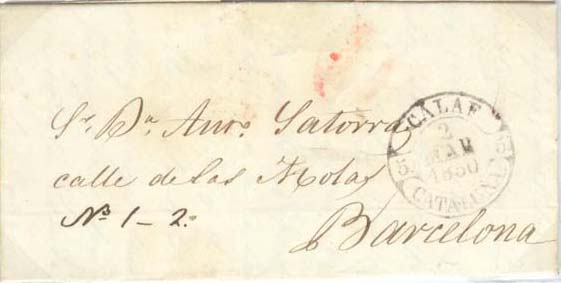 Sr. Dn. Anto. Satorra
calle de las Molas
No. 1 - 2.
Barcelona
CALAF
2
MAR
1850
CATALUÑA